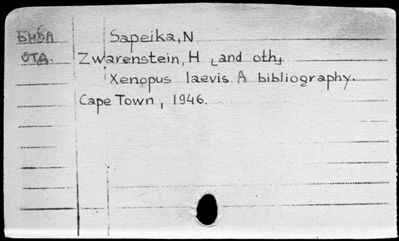 БИБЛ Sapeika, N
ОТД. Zwarenstein, H [and oth]
Xenopus laevis. A bibliography.
Cape Town, 1946.